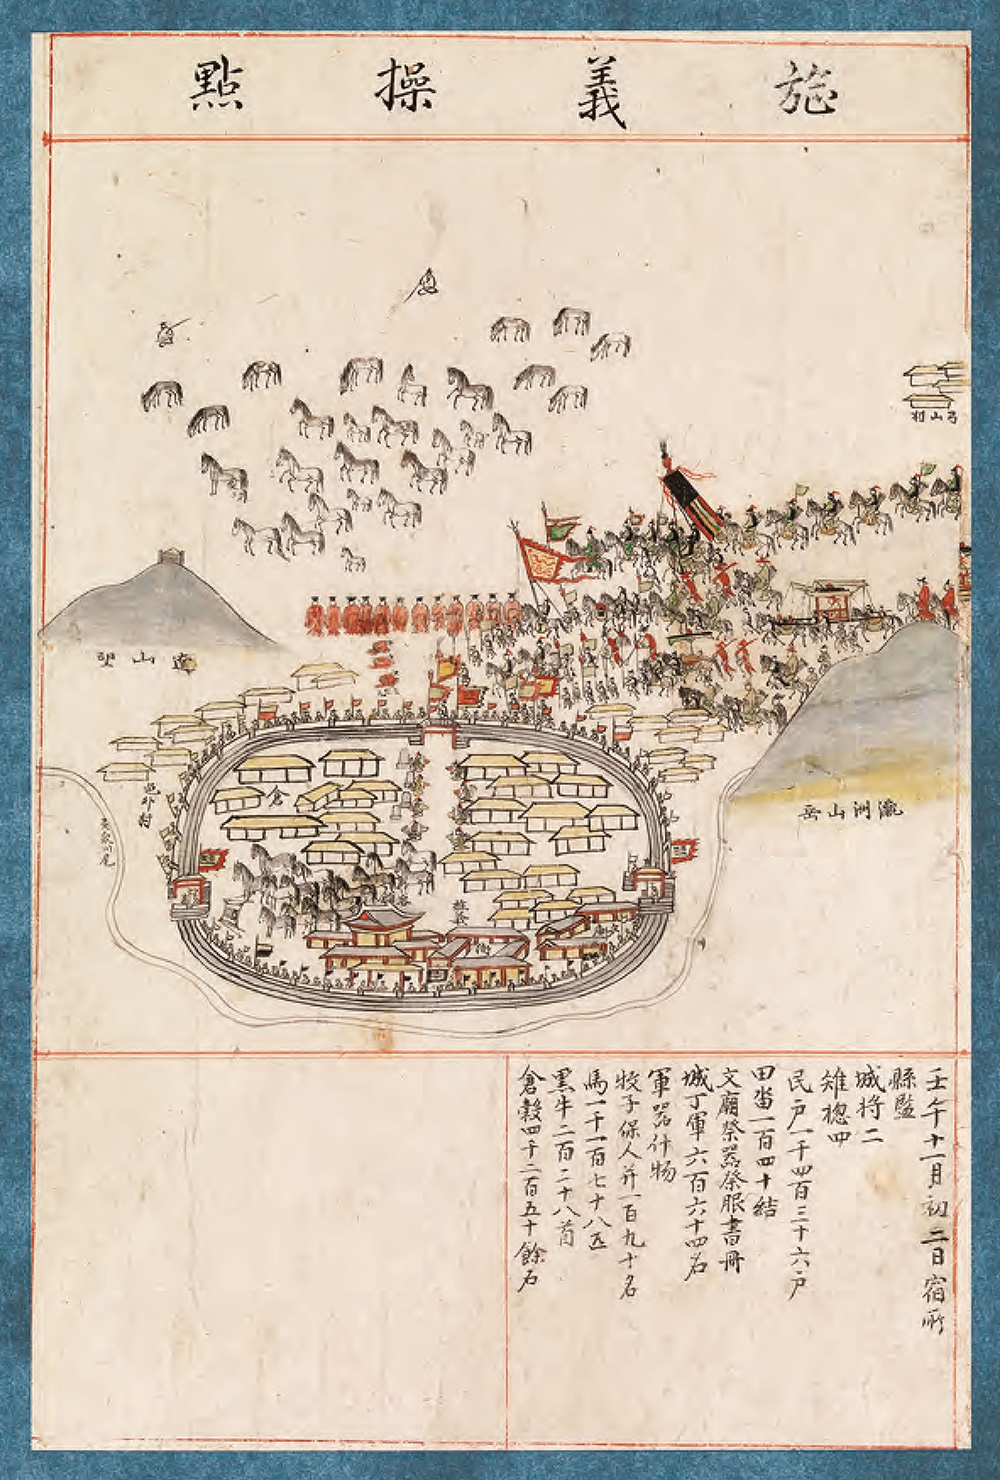 旌義操點
弓山村
達山望
瀛洲山岳
邑外村
川尾
倉
旌義
衙
壬午十一月初二日宿所
縣監
城将二
雉摠四
民戶一千四百三十六戶
田畓一百四十結
文廟祭器祭服書冊
城丁軍六百六十四名
軍器什物
牧子保人并一百九十名
馬一千一百七十八匹
黑牛二百二十八首
倉穀四千二百五十餘石